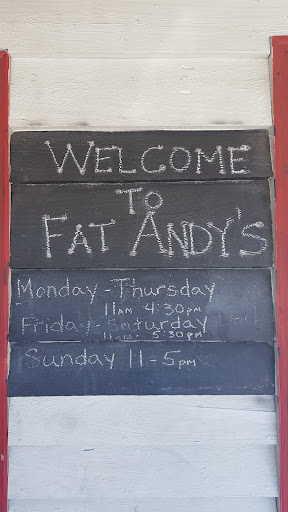 WELCOME
TO
FAT ANDY'S
Monday - Thursday
11am 4:30pm
Friday - Saturday
11am - 5:30pm
Sunday 11 - 5pm